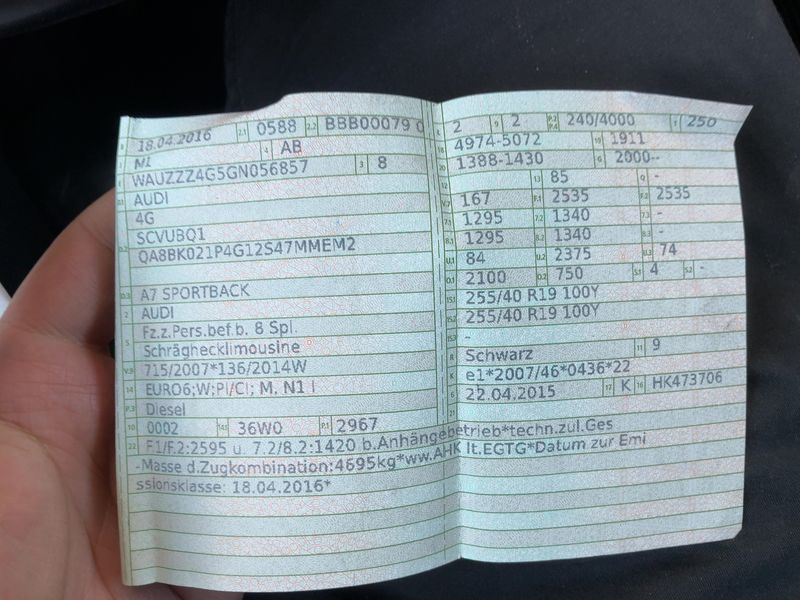 B 18.04.2016 2.1 0588 2.2 BBB00079 0
J M1 4 AB
E WAUZZZ4G5GN056857 3 8
D.1 AUDI
4G
D.2 SCVUBQ1
QA8BK021P4G12S47MMEM2
D.3 A7 SPORTBACK
2 AUDI
5 Fz.z.Pers.bef.b. 8 Spl.
Schräghecklimousine
V.9 715/2007*136/2014W
14 EURO6;W;PI/CI; M, N1 I
P.3 Diesel
10 0002 14.1 36W0 P.1 2967
L 2 9 2 P.2 P.4 240/4000 T 250
18 4974-5072 19 1911
20 1388-1430 G 2000--
12 13 85 Q -
V.7 167 F.1 2535 F.2 2535
7.1 1295 7.2 1340 7.3 -
8.1 1295 8.2 1340 8.3 -
U.1 84 U.2 2375 U.3 74
O.1 2100 O.2 750 S.1 4 S.2 -
15.1 255/40 R19 100Y
15.2 255/40 R19 100Y
15.3 -
R Schwarz 11 9
K e1*2007/46*0436*22
6 22.04.2015 17 K 16 HK473706
21
22 F1/F.2:2595 u. 7.2/8.2:1420 b.Anhängebetrieb*techn.zul.Ges
-Masse d.Zugkombination:4695kg*ww.AHK lt.EGTG*Datum zur Emi
ssionsklasse: 18.04.2016*